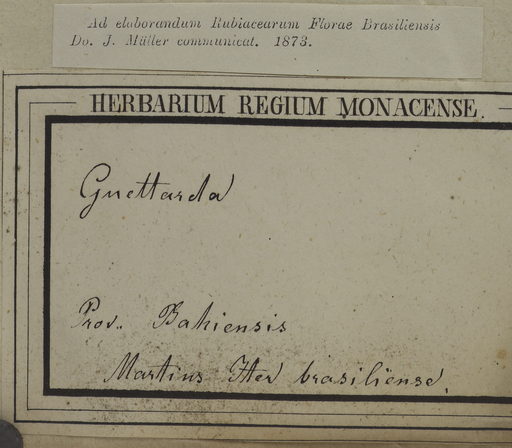 Ad elaborandum Rubiacearum Florae Brasiliensis
Do. J. Müller communicat. 1873.
HERBARIUM REGIUM MONACENSE.
Guettarda
Prov. Bahiensis
Martius Iter brasiliense.